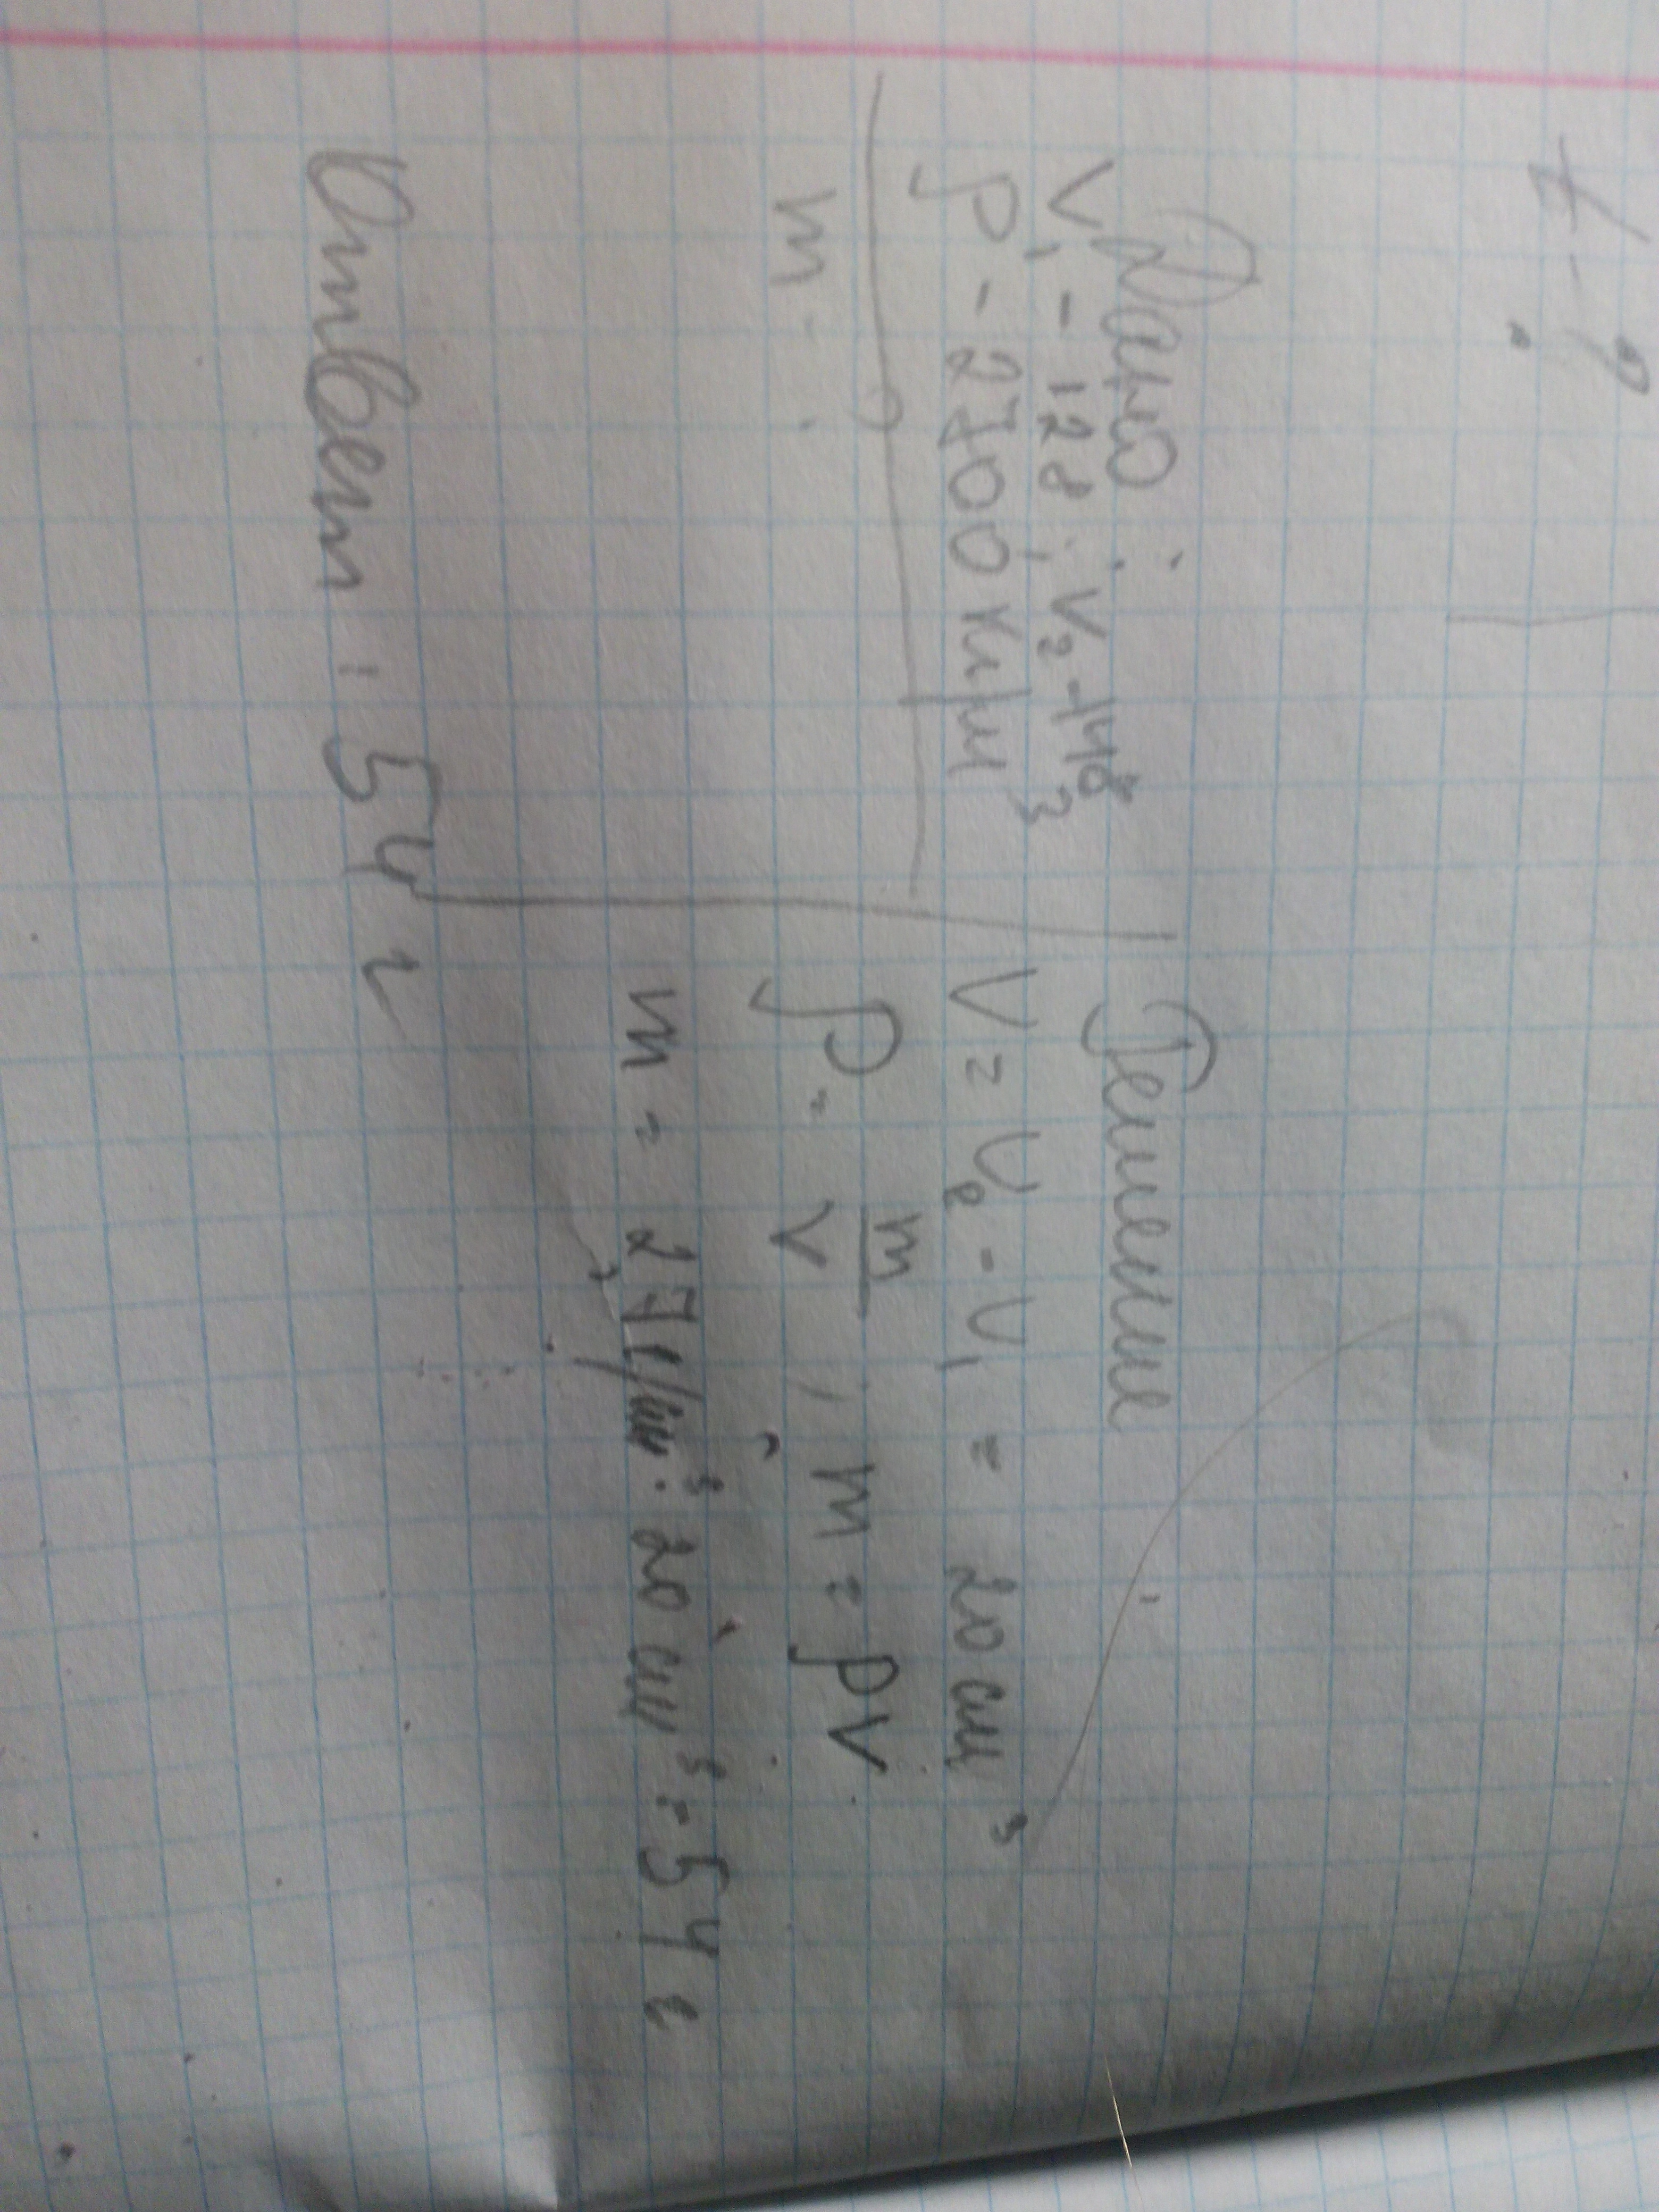 Дано:
V₁ - 128, V₂ - 148
ρ - 2700 кг/м³
m - ?
Решение
V = V₂ - V₁ = 20 см³
ρ = m/V, m = ρV
m = 2,7 г/см³ · 20 см³ = 54 г
Ответ: 54 г